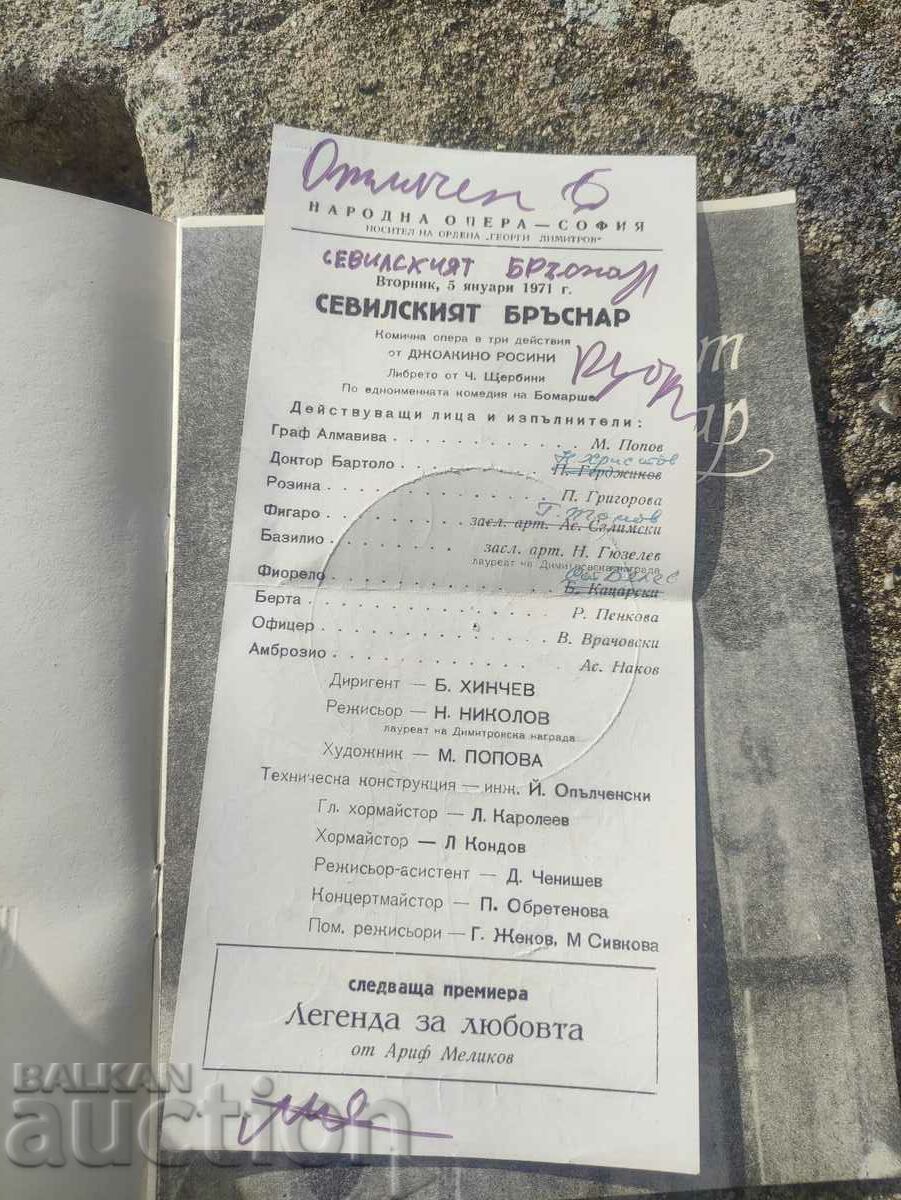 Отличен 6
НАРОДНА ОПЕРА — СОФИЯ
НОСИТЕЛ НА ОРДЕНА „ГЕОРГИ ДИМИТРОВ"
СЕВИЛСКИЯТ БРЪСНАР
Вторник, 5 януари 1971 г.
СЕВИЛСКИЯТ БРЪСНАР
Комична опера в три действия
от ДЖОАКИНО РОСИНИ
Либрето от Ч. Щербини
По едноименната комедия на Бомарше
Действуващи лица и изпълнители:
Граф Алмавива . . . . . . . . . . . . М. Попов
Н Христов
Доктор Бартоло . . . . . . . . . П. Герджиков
Розина . . . . . . . . . . . . . П. Григорова
Фигаро . . . . . . засл. арт. Ас. Селимски
Базилио . . . . . . . засл. арт. Н. Гюзелев
лауреат на Димитровска награда
Фиорело . . . . . . . . . . . . Б. Кацарски
Берта . . . . . . . . . . . . . Р. Пенкова
Офицер . . . . . . . . . . . . В. Врачовски
Амброзио . . . . . . . . . . . . Ас. Наков
Диригент — Б. ХИНЧЕВ
Режисьор — Н. НИКОЛОВ
лауреат на Димитровска награда
Художник — М. ПОПОВА
Техническа конструкция — инж. Й. Опълченски
Гл. хормайстор — Л. Каролеев
Хормайстор — Л Кондов
Режисьор-асистент — Д. Ченишев
Концертмайстор — П. Обретенова
Пом. режисьори — Г. Жеков, М Сивкова
следваща премиера
Легенда за любовта
от Ариф Меликов
BALKAN
auction